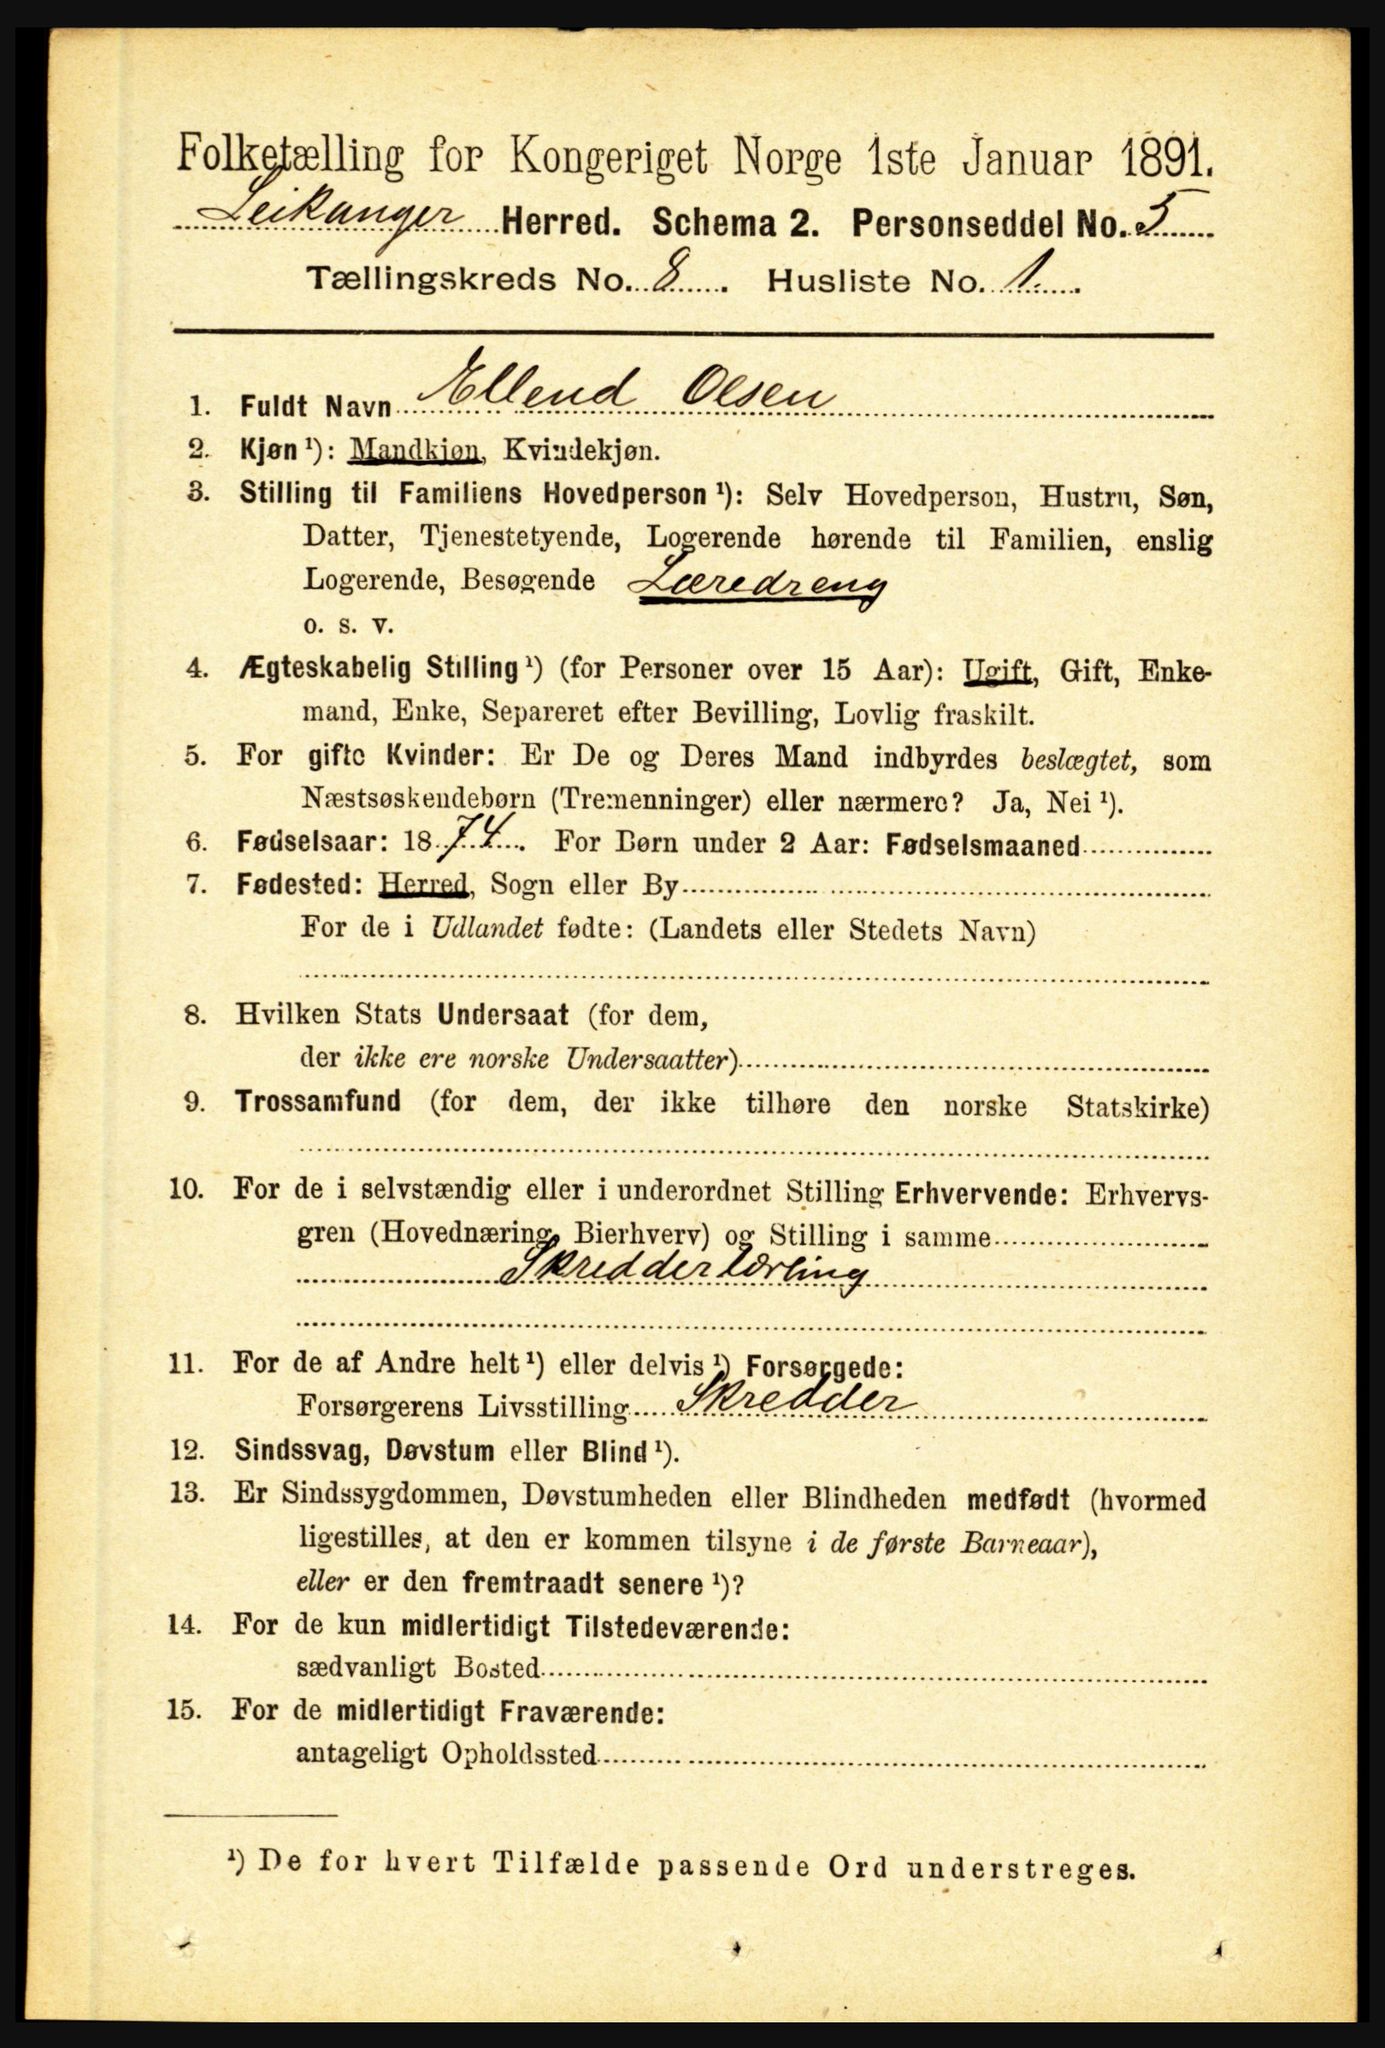 Folketælling for Kongeriget Norge 1ste Januar 1891.
Leikanger Herred. Schema 2. Personseddel No. 5
Tællingskreds No. 8. Husliste No. 1.
1. Fuldt Navn Ellend Olsen
2. Kjøn ¹): Mandkjøn, Kvindekjøn.
3. Stilling til Familiens Hovedperson ¹): Selv Hovedperson, Hustru, Søn,
Datter, Tjenestetyende, Logerende hørende til Familien, enslig
Logerende, Besøgende Læredreng
o. s. v.
4. Ægteskabelig Stilling ¹) (for Personer over 15 Aar): Ugift, Gift, Enke-
mand, Enke, Separeret efter Bevilling, Lovlig fraskilt.
5. For gifte Kvinder: Er De og Deres Mand indbyrdes beslægtet, som
Næstsøskendebørn (Tremenninger) eller nærmere? Ja, Nei ¹).
6. Fødselsaar: 1874. For Børn under 2 Aar: Fødselsmaaned
7. Fødested: Herred, Sogn eller By
For de i Udlandet fødte: (Landets eller Stedets Navn)
8. Hvilken Stats Undersaat (for dem,
der ikke ere norske Undersaatter)
9. Trossamfund (for dem, der ikke tilhøre den norske Statskirke)
10. For de i selvstændig eller i underordnet Stilling Erhvervende: Erhvervs-
gren (Hovednæring, Bierhverv) og Stilling i samme
Skredderlærling
11. For de af Andre helt ¹) eller delvis ¹) Forsørgede:
Forsørgerens Livsstilling Skredder
12. Sindssvag, Døvstum eller Blind ¹).
13. Er Sindssygdommen, Døvstumheden eller Blindheden medfødt (hvormed
ligestilles, at den er kommen tilsyne i de første Barneaar),
eller er den fremtraadt senere ¹)?
14. For de kun midlertidigt Tilstedeværende:
sædvanligt Bosted
15. For de midlertidigt Fraværende:
antageligt Opholdssted
¹) De for hvert Tilfælde passende Ord understreges.